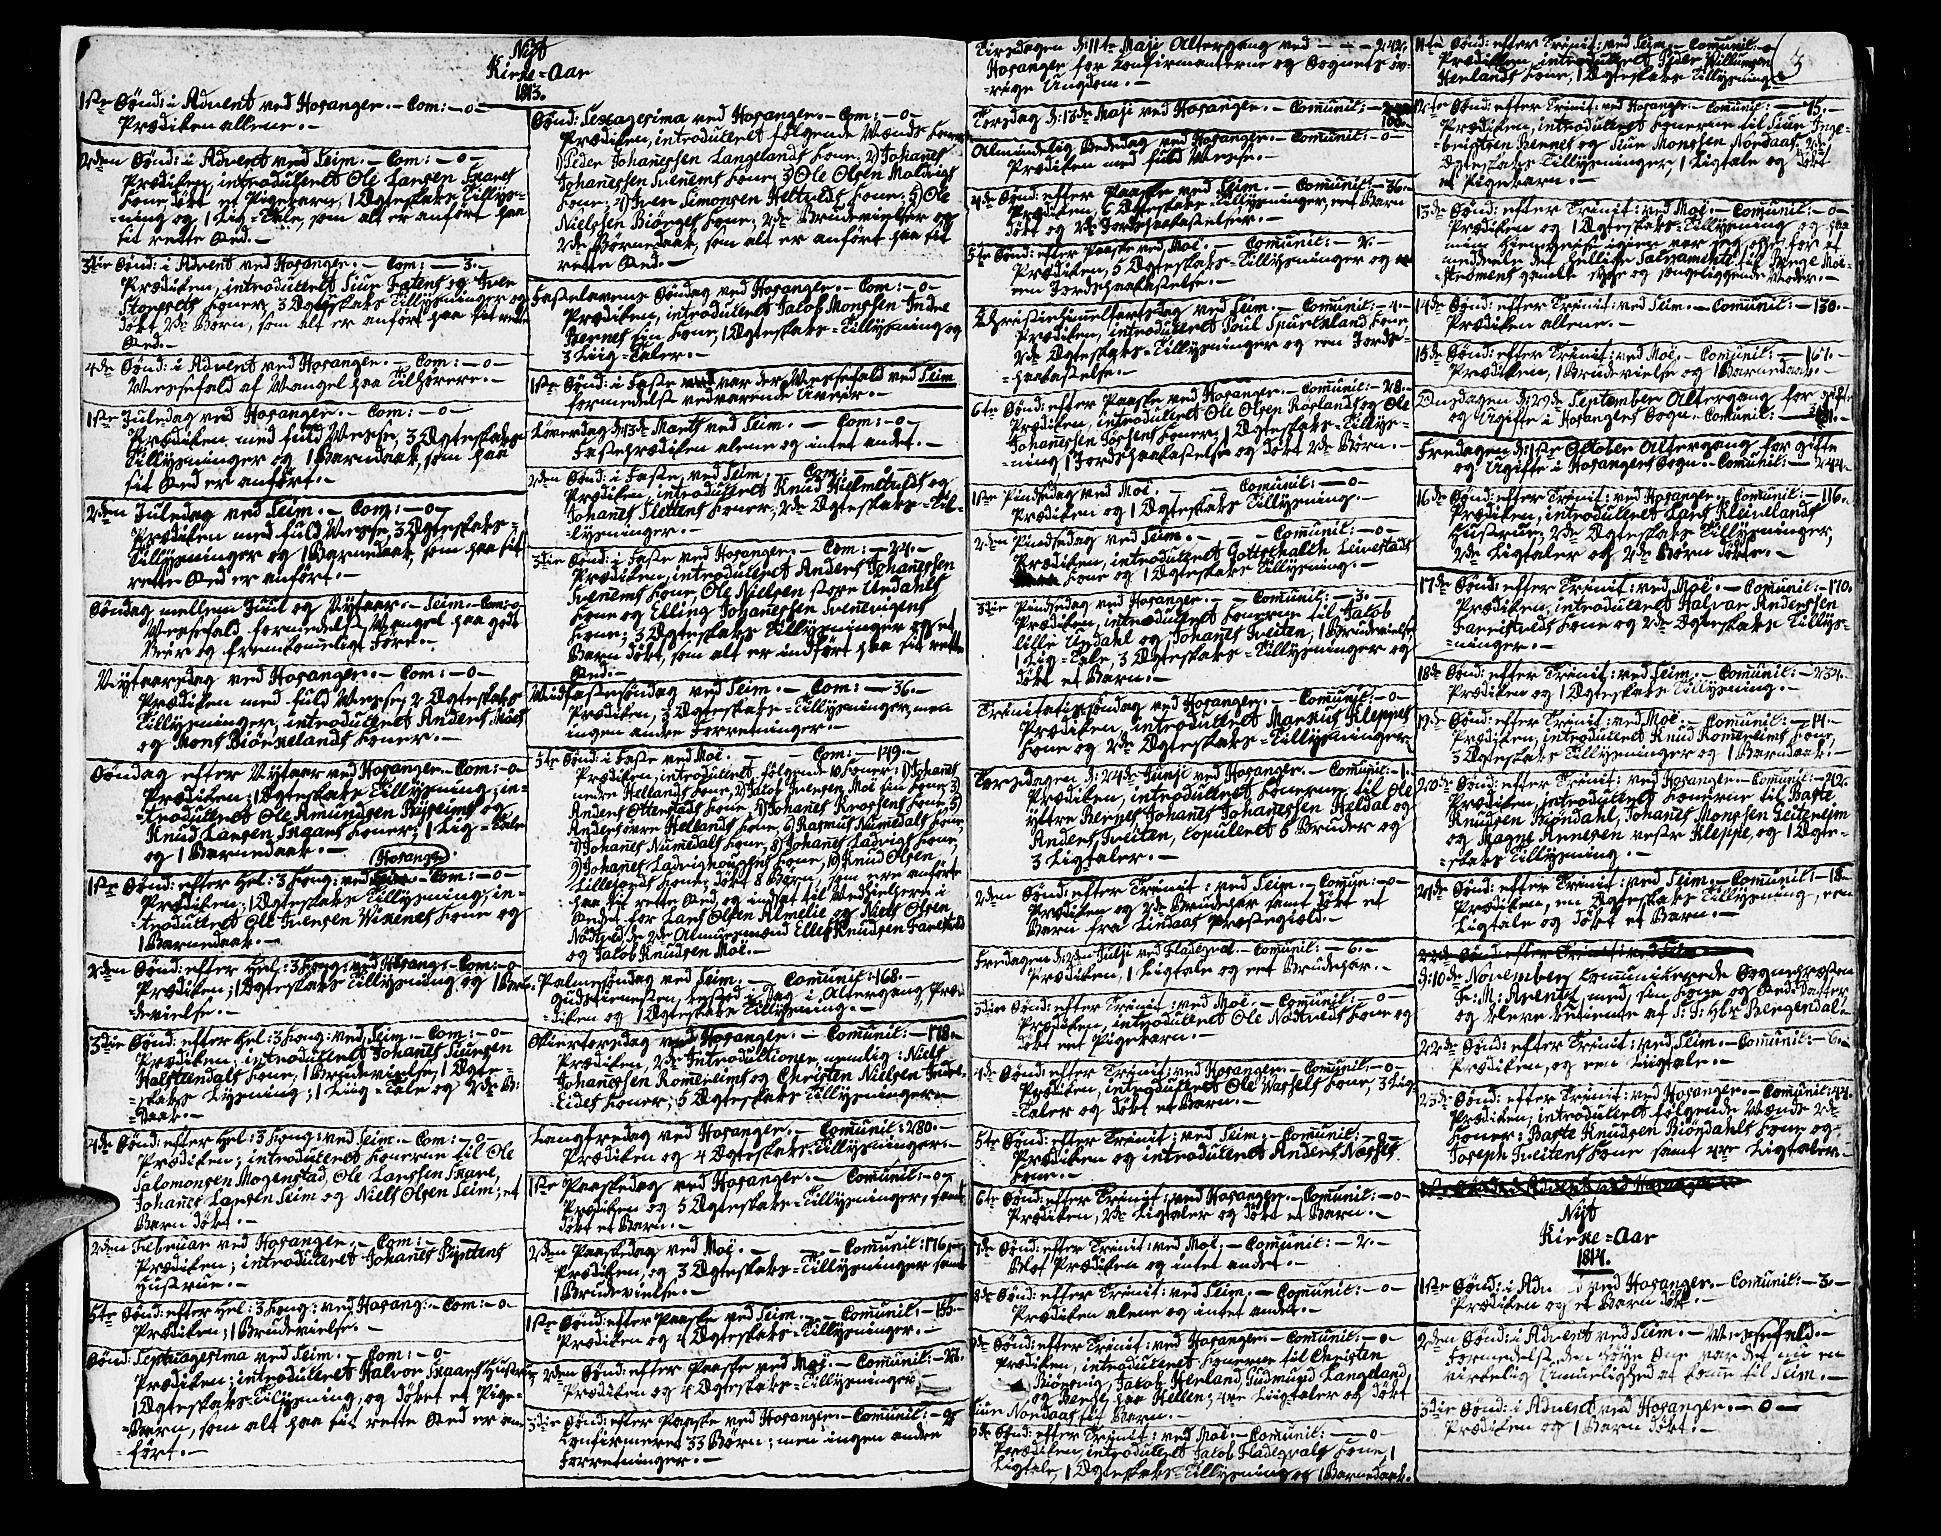 Nÿt
Kirke=Aar
1813.
1ste Sönd: i Advent ved Hosanger. - Com: - 0 -
Prædiken allene. -
2den Sönd: i Advent ved Seim. - Com: - 0 -
Prædiken, introdulleret Ole Larsen
Kone, döbt et Pigebarn, 1 Ægteskabs Tillÿs=
=ning og 1 Lig=Tale, som alt er anfört paa
sit rette Sted. -
3die Sönd: i Advent ved Hosanger. - Com: - 3. -
Prædiken, introdulleret Siur og Iver
Koner, 3 Ægteskabs Tillÿsninger og
döbt 2de Börn, som alt er anfört paa sit rette
Sted. -
4de Sönd: i Advent ved Hosanger. - Com: - 0 -
Messefald af Mangel paa Tilhörere. -
1ste Juledag ved Hosanger. - Com: - 0 -
Prædiken med fuld Messe, 3 Ægteskabs
Tillÿsninger og 1 Barnedaab, som paa
sit Sted er anfört. -
2den Juledag ved Seim. - Com: - 0 -
Prædiken med fuld Messe, 3 Ægteskabs=
Tillÿsninger og 1 Barnedaab, som paa sit
rette Sted er anfört. -
Söndag mellem Juul og Nÿtaar. - Seim. - Com: 0
Messefald formedelst Mangel paa godt
Veir og fremkomeligt Före. -
Nÿtaarsdag ved Hosanger. - Com: - 0 -
Prædiken med fuld Messe, 2 Ægteskabs
Tillÿsninger, introdulleret Anders
og Mons Biörnelands Koner. -
Söndag efter Nÿtaar ved Hosanger. - Com: - 0 -
Prædiken; 1 Ægteskabs Tillÿsning; in=
=trodulleret Ole Amundsen og
Knud Larsen Koner; 1 Lig=Tale
og 1 Barnedaab. -
Hosanger
1ste Sönd: efter Hel: 3 Kong: ved - Com: - 0 -
Prædiken; 1 Ægteskabs Tillÿsning; in=
trodulleret Ole Iversen Kone og
1 Barnedaab. -
2den Sönd: efter Hel: 3 Kong: ved Hosang: - Com: - 0
Prædiken; 1 Ægteskabs Tillÿsning og 1 Bru=
=devielse. -
3die Sönd: efter Hel: 3 Kong: ved Seim. - Com: - 0 -
Prædiken; introdulleret Johanes Siursen
Kone, 1 Brudevielse, 1 Ægte=
=skabs Lÿsning; 1 Liig=Tale og 2de B:
Daab. -
4de Sönd: efter Hel: 3 Kong: ved Seim. - Com: - 0 -
Prædiken; introdulleret Konerne til Ole
Salomonsen Mogenstad, Ole Larssen
Johanes Larsen Seim og Niels Olsen Seim; et
Barn döbt. -
2den Februar ved Hosanger. - Com: - 0 -
Prædiken; introdulleret Johanes
Hustrue. -
5te Sönd: efter Hel: 3 Kong: ved Hosang: - Com: - 0 -
Prædiken; 1 Brudevielse. -
Sönd: Septuagesima ved Seim. - Com: - 0
Prædiken; introdulleret Halvor Hustrue
1 Ægteskabs=Tillÿsning, og döbt et Pige=
=Barn, som alt paa sit rette Sted er an=
=fört. -
Sönd: Sexagesima ved Hosanger. - Com: - 0 -
Prædiken, introdulleret fölgende Mænds Koner
1) Peder Johanessen Langelands Kone; 2) Johanes
Johanessen Kone; 3) Ole Olsen
Kone; 4) Iver Simonsen Kone; 5) Ole
Nielssen Kone; 2de Brudevielser og
2de Barnedaab, som alt er anfört paa sit
rette Sted. -
Fastelavens Söndag ved Hosanger. - Com: - 0 -
Prædiken, introdulleret Jacob Monssen Indre
Bernes sin Kone, 1 Ægteskabs=Tillÿsning og
3 Liig=Taler. -
1ste Sönd: i Faste var der Messefald ved Seim
formedelst vedvarende Uveir. -
Löverdag d: 13de Marts ved Seim. - Com: - 0 -
Fasteprædiken alene og intet andet. -
2den Sönd: i Faste, ved Seim. - Com: - 0 -
Prædiken, introdulleret Knud og
Johanes Slettens Koner, 2de Ægteskabs=Til=
=lÿsninger. -
3die Sönd: i Faste ved Hosanger. - Com: - 24. -
Prædiken, introdulleret Anders Johanessen
Kone, Ole Nielsen store Urdahls
Kone og Elling Johanessen
Kone; 3 Ægteskabs Tillÿsninger og et
Barn döbt, som alt er indfört paa sit rette
Sted. -
Midfastesöndag ved Seim. - Com: - 36. -
Prædiken, 3 Ægteskabs=Tillÿsninger, men
ingen andre Forretninger. -
5te Sönd: i Faste ved Moë. - Com: - 149. -
Prædiken, introdulleret fölgende 10 Koner: 1) Johanes
nedre Hellands Kone, 2) Jacob Iversen Moë sin Kone, 3)
Anders Kone, 4) Johanes Kone, 5)
Anders övre Hellands Kone, 6) Rasmus Kone,
7) Johanes Kone, 8) Johanes Kone,
9) Johanes Kone, 10) Knud Olsen
Kone, döbt 8 Börn, som ere anfört
paa sit rette Sted, og indsat til Medhielpere i
Stedet for Lars Olsen Almelie og Niels Olsen
Nödtvedt de 2de Almuesmænd Ellef Knudsen
og Jacob Knudsen Moë. -
Palmesöndag ved Seim. - Comunil: 168. -
Gudstienesten, bestod i Dag i Altergang, Præ=
=diken og 1 Ægteskabs Tillÿsning. -
Skiertorsdag ved Hosanger. - Comunil: - 178. -
Prædiken, 2de Introdultioner nemlig: Niels
Johanessen Romereims og Christen Nielsen Indre
Eides Koner, 5 Ægteskabs Tillÿsninger. -
Langfredag ved Hosanger. - Comunil: 280. -
Prædiken og 4 Ægteskabs=Tillÿsninger. -
1ste Paaskedag ved Hosanger. - Comunil: - 0 -
Prædiken og 5 Ægteskabs=Tillÿsninger, samt
döbt et Barn. -
2den Paaskedag ved Moë. - Comunil: 176. -
Prædiken, og 3 Ægteskabs=Tillÿsninger samt
1 Brudevielse. -
1ste Sönd: efter Paaske ved Seim. - Comunil: - 155. -
Prædiken og 4 Ægteskabs=Tillÿsninger. -
2den Sönd: efter Paaske ved Moë. - Comunil: -
Prædiken og 4 Ægteskabs=Tillÿsninger
3die Sönd: efter Paaske ved Hosanger. - Comunil: - 0
Confirmeret 33 Börn; men ingen andre
Forretninger. -
Tirsdagen d: 11te Maji Altergang ved - - - 242. -
Hosanger for Confirmanterne og Sognets öv=
=rige Ungdom. -
Torsdag d: 13de Maji ved Hosanger. - Comunil: -
Almindelig Bededag ved Hosanger. - Comunil: - 0 -
Prædiken med fuld Messe. -
4de Sönd: efter Paaske ved Seim. - Comunil: - 36. -
Prædiken, 6 Ægteskabs=Tillÿsninger, eet Barn
döbt og 2de Jordspaakastelser. -
5te Sönd: efter Paaske ved Moë. - Comunil: - 2. -
Prædiken, 5 Ægteskabs=Tillÿsninger og
een Jordspaakastelse. -
Christi himmelfartsdag ved Seim. - Comunil: - 4. -
Prædiken, introdulleret Poul Kone,
2de Ægteskabs=Tillÿsninger og een Jords=
=paakastelse. -
6te Sönd: efter Paaske ved Hosanger. - Comunil: - 28. -
Prædiken, introdulleret Ole Olsen og Ole
Johanessen Koner; 1 Ægteskabs=Tillÿs=
=ning 1 Jordspaakastelse og döbt 2de Börn. -
1ste Pindsedag ved Moë - Comunil: - 0 -
Prædiken og 1 Ægteskabs Tillÿsning. -
2den Pindsedag ved Seim. - Comunil: - 0 -
Prædiken, introdulleret
Kone og 1 Ægteskabs Tillÿsning. -
3die Pindsedag ved Hosanger. - Comunil: - 3. -
Prædiken, introdulleret Konerne til Jacob
lille Urdahl og Johanes Tveiten, 1 Brudevielse
1 Lig=Tale, 3 Ægteskabs=Tillÿsninger og
döbt et Barn. -
Trinitatissöndag ved Hosanger. - Comunil: - 0 -
Prædiken, introdulleret Markus Kleppes
Kone og 2de Ægteskabs=Tillÿsninger. -
Torsdagen d: 24de Junji ved Hosanger. - Comunil: - 1. -
Prædiken, introdulleret Konerne til Ole
ÿttre Bernes Johanes Johanessen Heldal og
Anders Tveiten, Copuleret 6 Bruder og
3 Ligtaler. -
2den Sönd: efter Trinit: ved Seim. - Comun: - 0 -
Prædiken og 2de Brudepar samt döbt et
Barn fra Lindaas Præstegield. -
Fredagen d: 2den Julji ved Fladeqval. - Comunil: - 6. -
Prædiken, 1 Ligtale og eet Brudepar. -
3die Sönd: efter Trinit: ved Moë. - Comunil: - 0 -
Prædiken, introdulleret Ole Nödtvedts Kone og
döbt eet Pigebarn. -
4de Sönd: efter Trinit: ved Hosanger. - Comunil: - 0 -
Prædiken, introdulleret Ole Kone, 3 Lig=
=Taler og döbt et Barn. -
5te Sönd: efter Trinit: ved Seim: - Comunil: - 0 -
Prædiken og introdulleret Anders
Kone. -
6te Sönd: efter Trinit: ved Hosanger. - Comunil: - 0 -
Prædiken, 2de Ligtaler og döbt et Barn. -
7de Sönd: efter Trinit: ved Moë; - Comunil: - 2. -
Blot Prædiken og intet andet. -
8de Sönd: efter Trinit: ved Seim. - Comunil: - 0
Prædiken alene og intet andet. -
9de Sönd: efter Trinit: ved Hosanger. - Comunil: - 0 -
Prædiken, introdulleret Konerne til Christen
Jacob Herland, Gudmund Langeland,
og Bendt paa Hellen; 4re Liigtaler og döbt
Siur Nordaas sit Barn. -
10de Sönd: efter Trinit: ved Moë - Comunil: - 0 -
Prædiken, introdulleret Jacob Fladeqvals Kone, 1
Ligtale, 1 Ægteskabs=Tillÿsning og 1 Barnedaab. -
3
11te Sönd: efter Trinit: ved Seim. - Comunil: - 0
Prædiken, introdulleret Peder Willumsen
Herlands Kone, 1 Ægteskabs Tillÿsning
12te Sönd: efter Trinit: ved Hosanger. - Comunil: - 75. -
Prædiken, introdulleret Konerne til Siur Inge=
=brigtsen Bernes og Siur Monssen Nordaas, 2de
Ægteskabs Tillÿsninger, 1 Ligtale og döbt
et Pigebarn. -
13de Sönd: efter Trinit: ved Moë. - Comunil: - 0 -
Prædiken og 1 Ægteskabs Tillÿsning og paa
min Hiemreise igien var jeg oppe for at
meddeele det hellige Sacramente til Börge Moë=
gamle sÿge og sengeliggende Moder. -
14de Sönd: efter Trinit: ved Seim. - Comunil: - 130. -
Prædiken allene. -
15de Sönd: efter Trinit: ved Moë. - Comunil: - 167. -
Prædiken, 1 Brudevielse og 1 Barnedaab. -
Onsdagen d: 29de September Altergang for gifte
og Ugifte i Hosangers Sogn. - Comunil: -
Fredagen d: 1ste Oktober Altergang for gifte
og Ugifte i Hosangers Sogn. - Comunil: - 244. -
16de Sönd: efter Trinit: ved Hosanger. - Comunil: - 116. -
Prædiken, introdulleret Lars Kleivelands
Hustrue; 2de Ægteskabs Tillÿsninger,
2de Ligtaler og 2de Börn döbte. -
17de Sönd: efter Trinit: ved Moë. - Comunil: - 170. -
Prædiken, introdulleret Halvor Anderssen
Kone og 2de Ægteskabs Tillÿs=
=ninger. -
18de Sönd: efter Trinit: ved Seim. - Comunil: - 234. -
Prædiken og 1 Ægteskabs Tillÿsning. -
19de Sönd: efter Trinit: ved Moë. - Comunil: - 14. -
Prædiken, introdulleret Knud Romereims Kone,
3 Ægteskabs Tillÿsninger og 1 Barnedaab. -
20de Sönd: efter Trinit: ved Hosanger. - Comunil: - 42. -
Prædiken, introdulleret Konerne til Baste
Knudsen Biöndahl, Johanes Monssen
og Magne Arnesen vestre Kleppe, og 1 Ægte=
=skabs Tillÿsning. -
21de Sönd: efter Trinit: ved Seim. - Comunil: - 18. -
Prædiken, en Ægteskabs Tillÿsning, een
Ligtale og döbt et Barn. -
d: 10de November Comunikerede Sogneprästen
Fr: M: Arentz, med sin Kone og Sted=Datter
og blev betient af S: T: Hr Bergendal. -
22de Sönd: efter Trinit: ved Seim. - Comunil: - 6. -
Prædiken, og een Liigtale. -
23de Sönd: efter Trinit: ved Hosanger. - Comunil: 44.
Prædiken, introdulleret fölgende Mænds 2de
Koner: Baste Knudsen Biöndahls Kone og
Joseph Tveitens Kone samt 4re Ligtaler. -
Nÿt
Kirke=Aar
1814.
1ste Sönd: i Advent ved Hosanger. - Comunil: - 3. -
Prædiken og et Barn döbt. -
2den Sönd: i Advent ved Seim. - Messefald. -
formedelst den höÿe Snee var det mig en
virkelig Umuelighed at kome til Seim. -
3die Sönd: i Advent ved Hosanger. - 0 -
Prædiken og 1 Barn döbt. -